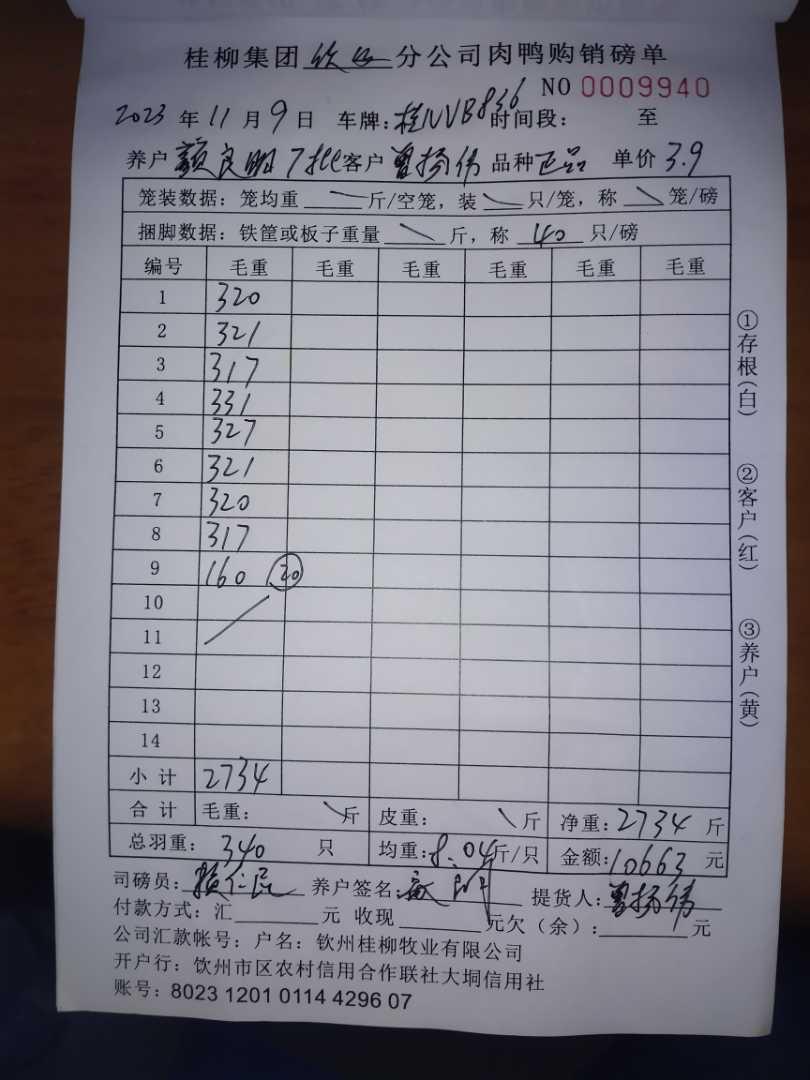 桂柳集团 钦州 分公司肉鸭购销磅单
NO 0009940
2023 年 11 月 9 日 车牌:桂NVB836 时间段: 至
养户 颜良明 7批 客户 曾扬伟 品种 正品 单价 3.9
笼装数据:笼均重 斤/空笼,装 只/笼,称 笼/磅
捆脚数据:铁筐或板子重量 斤,称 40 只/磅
编号 毛重 毛重 毛重 毛重 毛重 毛重
1 320
2 321
3 317
4 331
5 327
6 321
7 320
8 317
9 160 20
10
11
12
13
14
小计 2734
合计 毛重: 斤 皮重: 斤 净重:2734 斤
总羽重: 340 只 均重:8.04 斤/只 金额:10663 元
司磅员: 养户签名: 提货人:曾扬伟
付款方式:汇 元 收现 元欠(余): 元
公司汇款帐号:户名:钦州桂柳牧业有限公司
开户行:饮州市区农村信用合作联社大垌信用社
账号:8023 1201 0114 4296 07
①存根(白)
②客户(红)
③养户(黄)